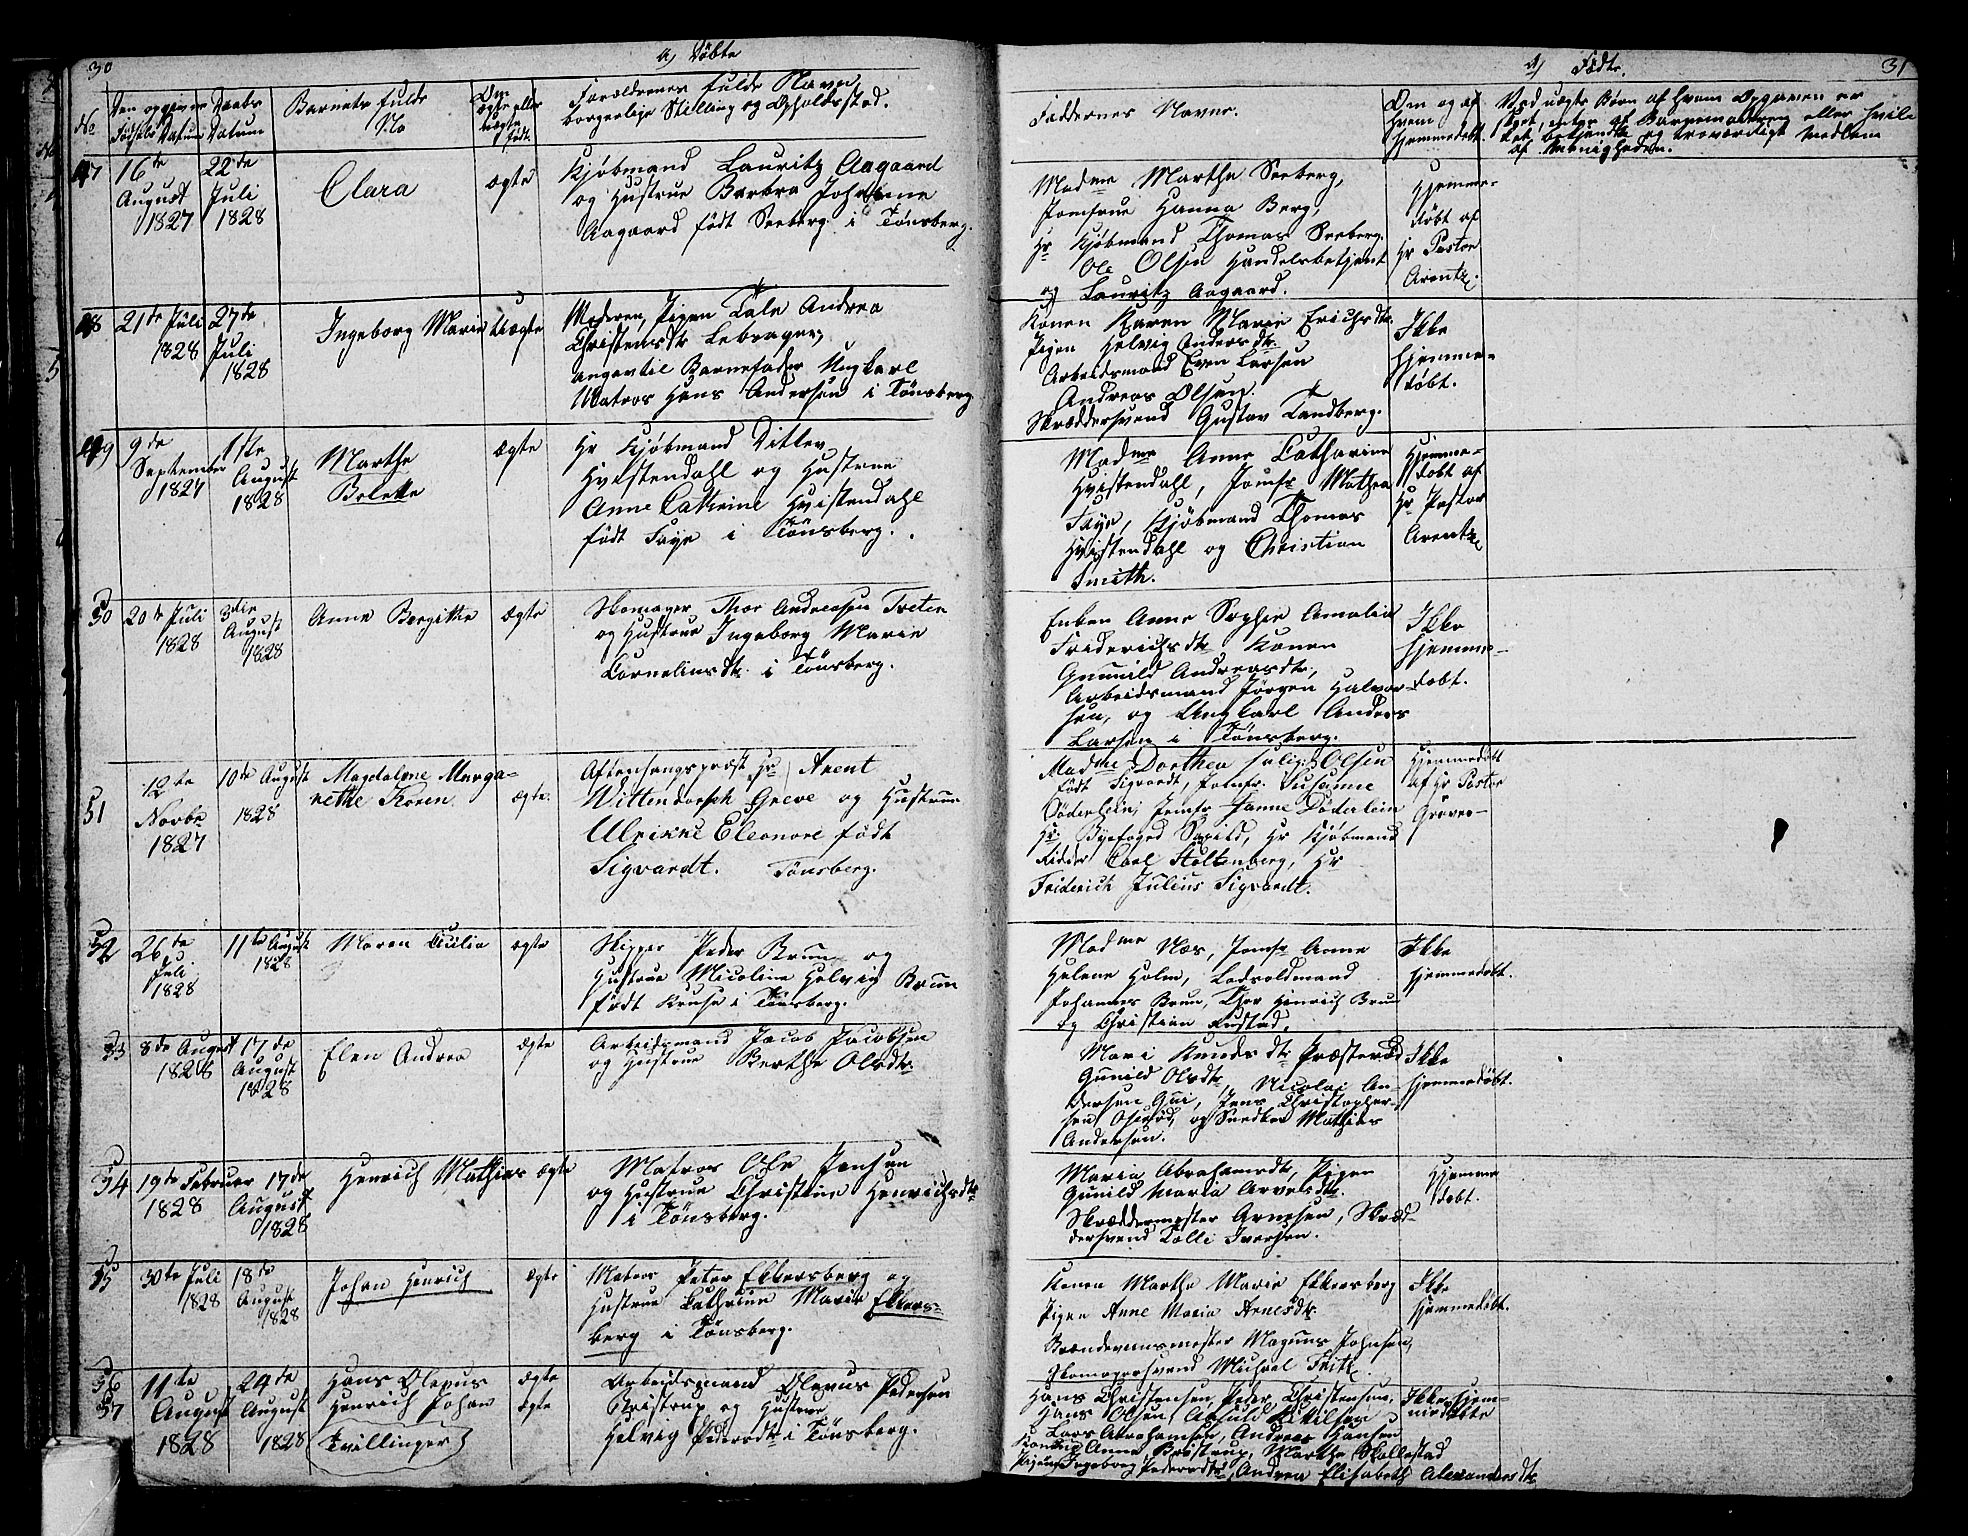 30
a) Døbte
No
Den opgivne Fødsels Datum
Daabs Datum
Barnets fulde
No
Om ægte eller uægte født.
Forældrenes fulde Navn
borgerlige Stilling og Opholdssted.
47
16de
August
1827
22de
Juli
1828
Clara
ægte
Kjøbmand Lauritz Aagaard
og Hustrue Barbra Johanne
Aagaard født Seeberg i Tønsberg.
48
21de Juli
1828
27de
Juli
1828
Ingeborg Marie
Uægte
Moderen, Pigen Tale Andrea
Christensdtr
angav til Barnefader Ungkarl
Matros Hans Andersen i Tønsberg
49
9de
September
1827
1ste
August
1828
Marthe
Bolette
ægte
Hr Kjøbmand Ditlev
Hvistendahl og Hustrue
Anne Cathrine Hvistendahl
født Faye i Tønsberg.
50
20de Juli
1828
3die
August
1828
Anne Bergitte
ægte
Skomager Thor Andreasen Tveten
og Hustrue Ingeborg Marie
Corneliusdtr i Tønsberg.
51
12te
Novbr
1827
10de August
1828
Magdalene Marga-
rethe Koren
ægte.
Aftensangspræst Hr Arent
Wittendorph Greve og Hustrue
Ulrikke Eleonore født
Sigvardt. Tønsberg.
52
26de
Juli
1828
11te August
1828
Maren Cicilia
ægte
Skipper Peder Brun og
Hustrue Nicoline Helvig Brun
født Kruse i Tønsberg.
53
8de August
1828
17de
August
1828
Elen Andrea
ægte
Arbeidsmand Jacob Jacobsen
og Hustrue Berthe Olsdtr.
54
19de Februar
1828
17de
August
1828
Henrich Mathias
ægte
Matros Ole Jensen
og Hustrue Christine Henrichsdtr
i Tønsberg.
55
30te Juli
1828
18de
August
1828
Johan Henrich
ægte
Matros Peter Ekkersberg og
Hustrue Cathrine Marie Ekkers-
berg i Tønsberg.
56
57
11te
August
1828
24de
August
1828
Hans Olavus
Henrich Johan
Tvillinger
ægte
ægte
Arbeidsmand Olavus Pedersen
Bristrup og Hustrue
Helvig Pedersdtr i Tønsberg.
a) Fødte.
31
Faddernes Navne.
Om og af
Hvem
hjemmedøbt.
Ved uægte Børn af hvem Opgaven er
skeet, enten af Barnemoderen eller hvilk
et bekjendt og troværdigt Medlem
af Menigheden.
Madme Marthe Seeberg,
Jomfrue Hanna Berg,
Hr Kjøbmand Thomas Seeberg.
Ole Olsen Handelsbetjent
og Lauritz Aagaard.
Hjemme-
døbt af
Hr Pastor
Arentz.
Konen Karen Marie Erichsdtr
Pigen Helvig Andersdtr.
Arbeidsmand Even Larsen
Andreas Olsen.
Skræddersvend Gustav Tandberg.
Ikke
hjemme-
døbt.
Madme Anne Catharine
Hvistendahl, Jomfr Mathea
Faye, Kjøbmand Thomas
Hvistendahl og Christian
Smith.
Hjemme-
døbt af
Hr Pastor
Arentz
Enken Anne Sophie Amalia
Friderichsdtr Konen
Gunnild Andreasdtr,
Arbeidsmand Jørgen Halvor-
sen, og Ungkarl Anders
Larsen i Tønsberg.
Ikke
hjemme-
døbt.
Madme Dorthea Julie Olsen
født Sigvardt, Jomfr. Susanne
Døderlein, Jomfr Hanne Døderlein
Hr Byefoged Saxild, Hr Kjøbmand
Ridder Carl Stoltenberg, Hr
Friderich Julius Sigvardt.
Hjemmedøbt
af Hr Pastor
Greve
Madme Næs, Jomfr Anne
Helene Holm, Lodsoldmand
Johannes Brun, Thor Henrich Brun
og Christian Fustad.
Ikke
hjemmedøbt.
Mari Knudsdtr Præsterød
Gunild Olsdtr, Nicolai An-
dersen, Jens Christopher-
sen, og Snedker Mathias
Andersen.
Ikke
hjemmedøbt.
Maria Abrahamsdtr, Pigen
Gunild Maria Arvesdtr.
Skræddermester Arnesen, Skræd-
dersvend Tolli Iversen.
Hjemme
døbt.
Konen Marthe Marie Ekkersberg
Pigen Anne Maria Arnesdtr.
Brændeviinsmester Magnus Johnsen,
Skomagersvend Michael Fritz.
Ikke
hjemmedøbt.
Hans Christensen, Peder Christensen,
Hans Olsen,
Lars Abrahamsen, Andreas Hansen
Konen Anne Bristrup, Marthe Skallestad
Pigen Ingeborg Pedersdtr, Andrea Elisabeth Alexandersdtr
Ikke hjem-
medøbte